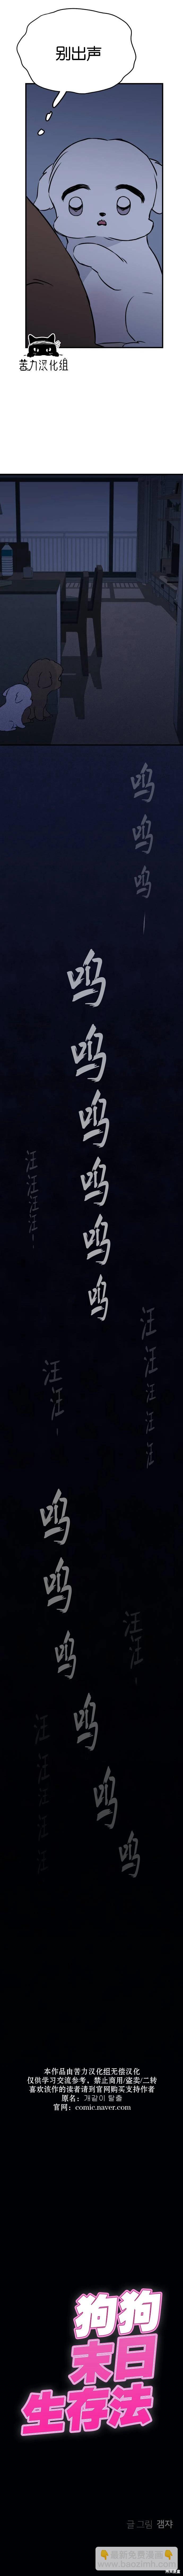 别出声
苦力汉化组
呜
呜
呜
呜
呜
呜
呜
呜
呜
汪
汪
汪
汪
汪
汪
汪
汪
汪
汪
呜
呜
呜
呜
呜
呜
汪
汪
汪
汪
汪
汪
本作品由苦力汉化组无偿汉化
仅供学习交流参考，禁止商用/盗卖/二转
喜欢该作的读者请到官网购买支持作者
原名：개같이 탈출
官网：comic.naver.com
狗狗
末日
生存法
글 그림 갬쟈
👇最新免費漫畫👇
baozimh.com